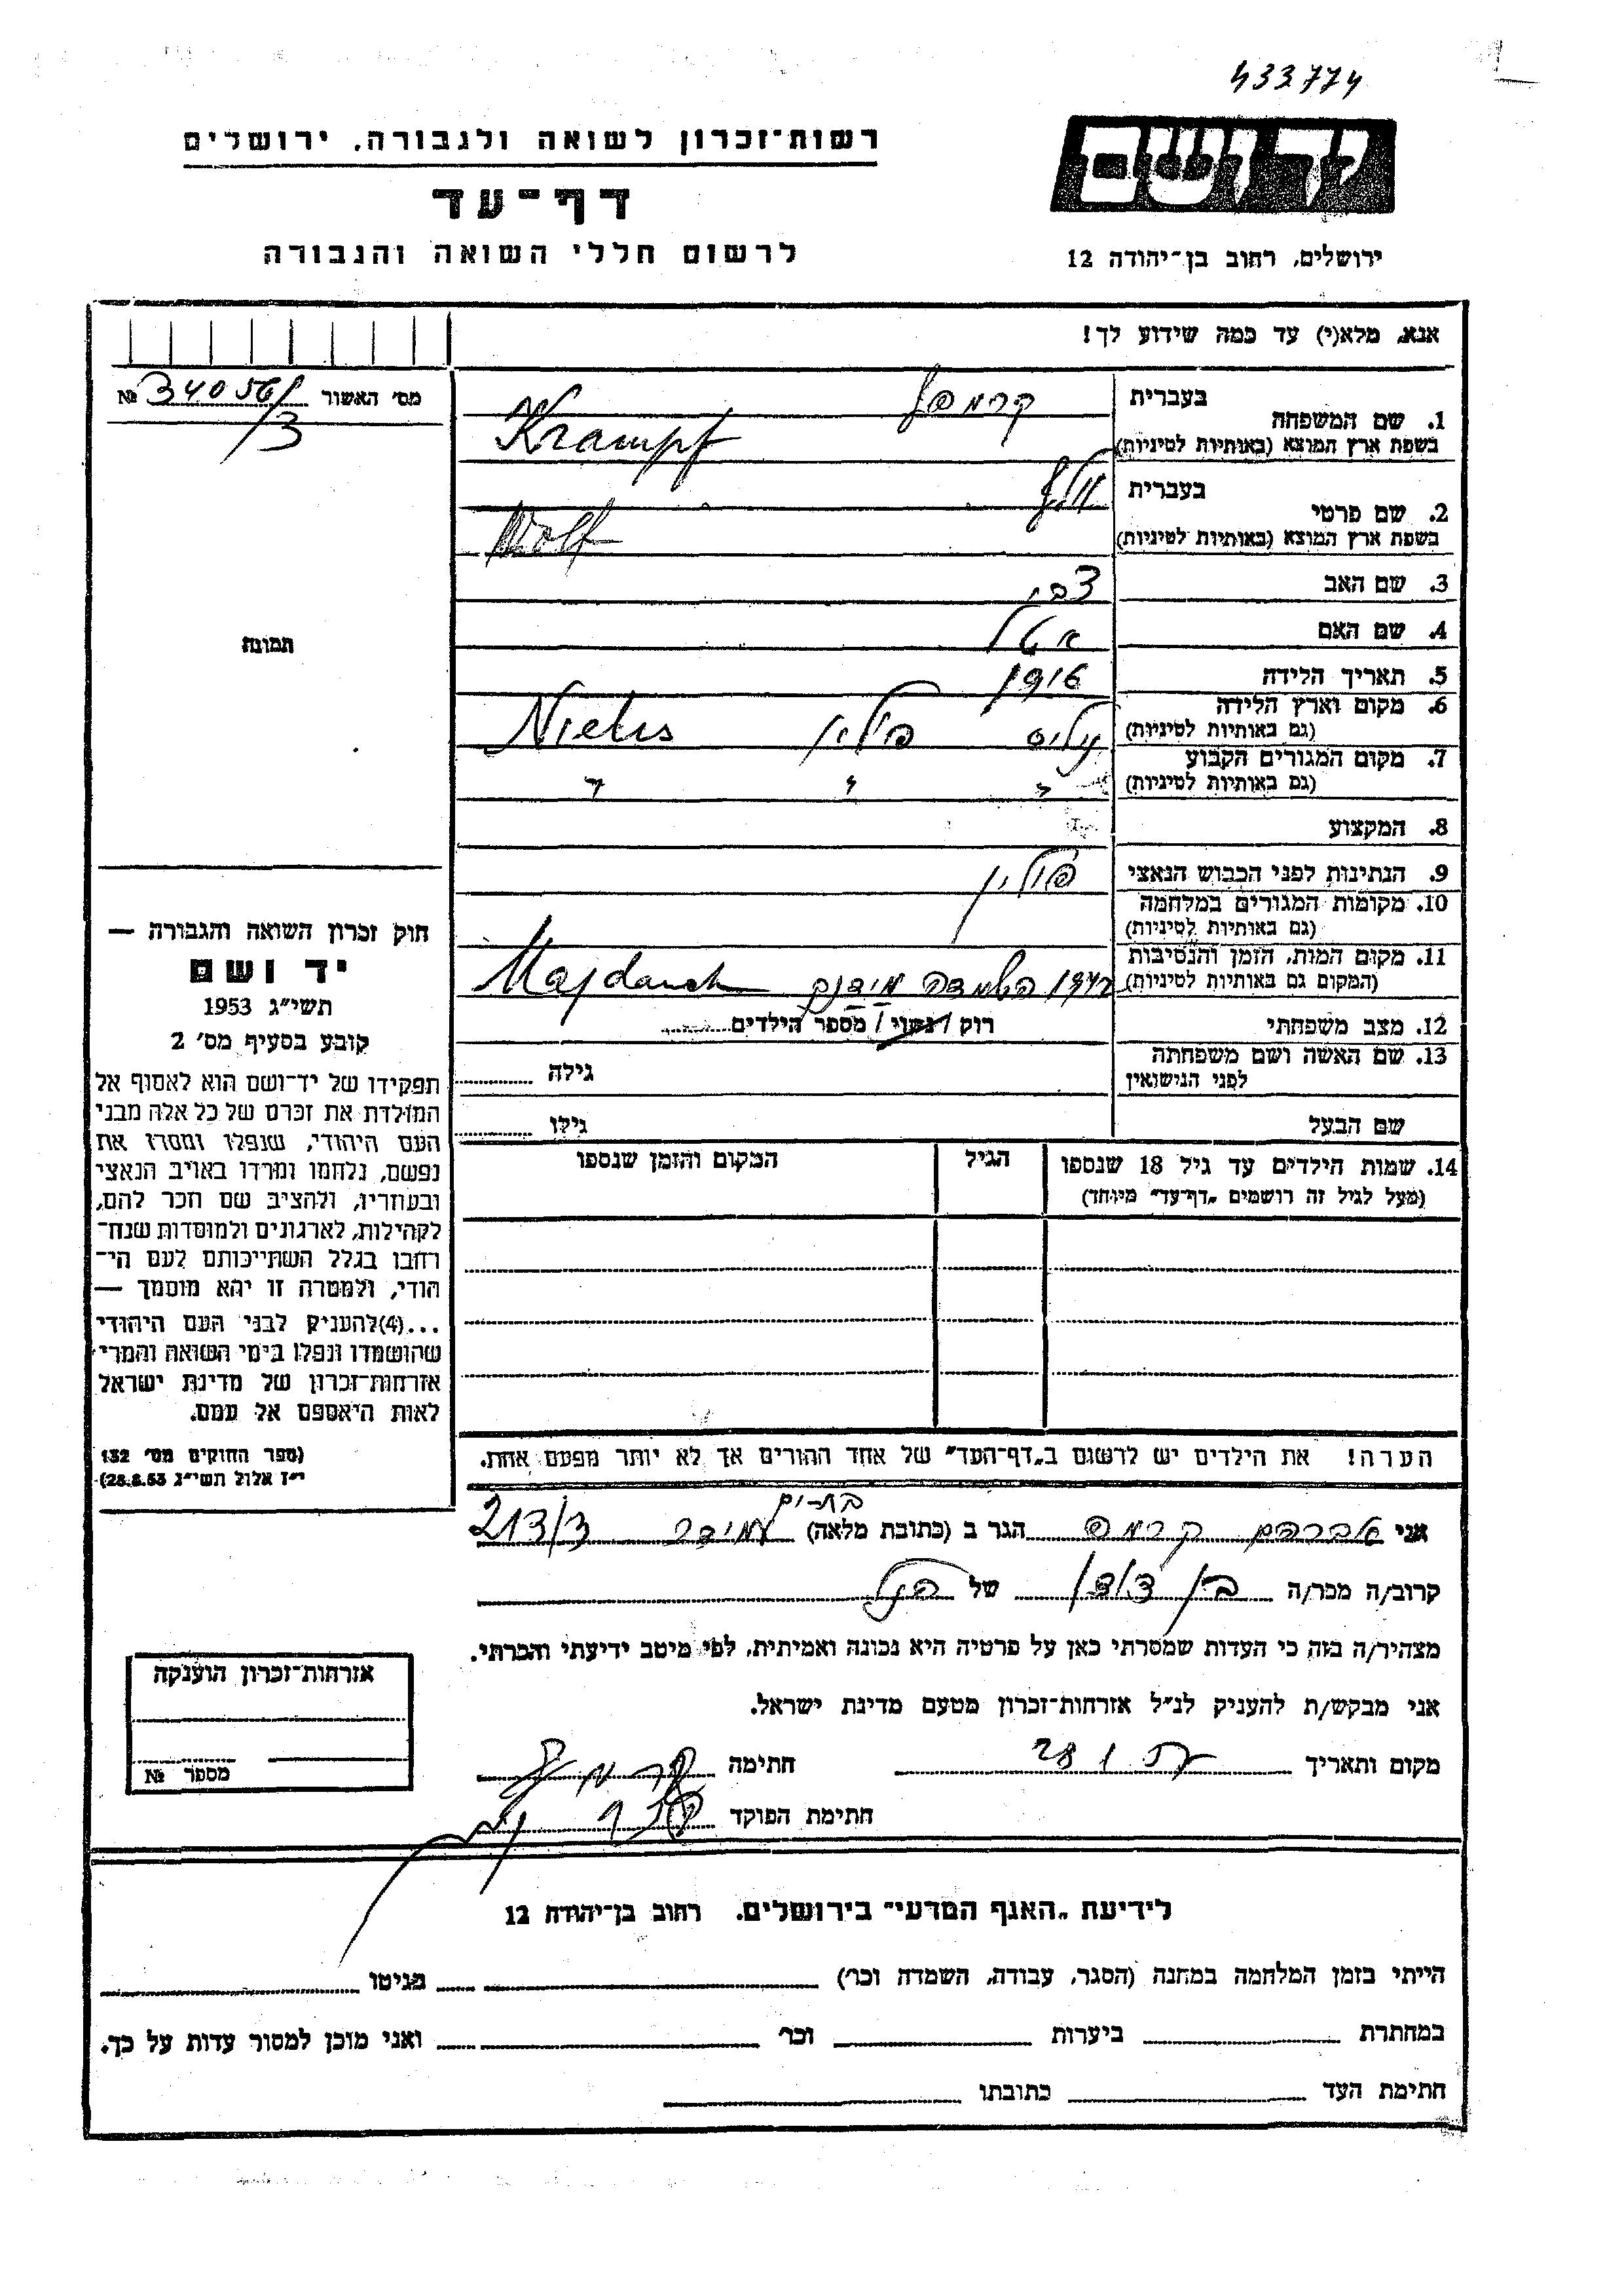 433774
ידושם
רשות־זכרון לשואה ולגבורה, ירושלים
דף־עד
לרשום חללי השואה והגבורה
ירושלים, רחוב בן־יהודה 12
אנא, מלא(י) עד כמה שידוע לך!
מס' האשור 34056/ №
/3
1. שם המשפחה בעברית קרמפף
בשפת ארץ המוצא (באותיות לטיניות) Krampf
2. שם פרטי בעברית
בשפת ארץ המוצא (באותיות לטיניות) Wolf
3. שם האב צבי
4. שם האם אטל
5. תאריך הלידה 1916
6. מקום וארץ הלידה
(גם באותיות לטיניות) פולין
7. מקום המגורים הקבוע
(גם באותיות לטיניות) " " "
8. המקצוע
9. הנתינות לפני הכבוש הנאצי פולין
10. מקומות המגורים במלחמה
(גם באותיות לטיניות)
11. מקום המות, הזמן והנסיבות
(המקום גם באותיות לטיניות) השמדה מידנק Majdanek
12. מצב משפחתי רוק / נשוי / מספר הילדים
13. שם האשה ושם משפחתה
לפני הנישואין גילה
שם הבעל גילו
14. שמות הילדים עד גיל 18 שנספו הגיל המקום והזמן שנספו
(מעל לגיל זה רושמים „דף־עד" מיוחד)
הערה! את הילדים יש לרשום ב„דף־העד" של אחד ההורים אך לא יותר מפעם אחת.
תמונה
חוק זכרון השואה והגבורה —
יד ושם
תשי"ג 1953
קובע בסעיף מס' 2
תפקידו של יד־ושם הוא לאסוף אל
המולדת את זכרם של כל אלה מבני
העם היהודי, שנפלו ומסרו את
נפשם, נלחמו ומרדו באויב הנאצי
ובעוזריו, ולהציב שם וזכר להם,
לקהילות, לארגונים ולמוסדות שנח־
רחבו בגלל השתייכותם לעם הי־
הודי, ולמטרה זו יהא מוסמך —
...(4)להעניק לבני העם היהודי
שהושמדו ונפלו בימי השואה והמרי
אזרחות־זכרון של מדינת ישראל
לאות היאספם אל עמם.
(ספר החוקים מס' 132
י"ז אלול תשי"ג 28.8.53)
בת־ים
אני אברהם קרמפ הגר ב (כתובת מלאה) עמידר
קרוב/ה מכר/ה בן דודו של הנ"ל
מצהיר/ה בזה כי העדות שמסרתי כאן על פרטיה היא נכונה ואמיתית, לפי מיטב ידיעתי והכרתי.
אני מבקש/ת להעניק לנ"ל אזרחות־זכרון מטעם מדינת ישראל.
מקום ותאריך חתימה
חתימת הפוקד
אזרחות־זכרון הוענקה
מספר №
לידיעת „האגף המדעי" בירושלים, רחוב בן־יהודה 12
הייתי בזמן המלחמה במחנה (הסגר, עבודה, השמדה וכו') בגיטו
במחתרת ביערות וכו' ואני מוכן למסור עדות על כך.
חתימת העד כתובתו